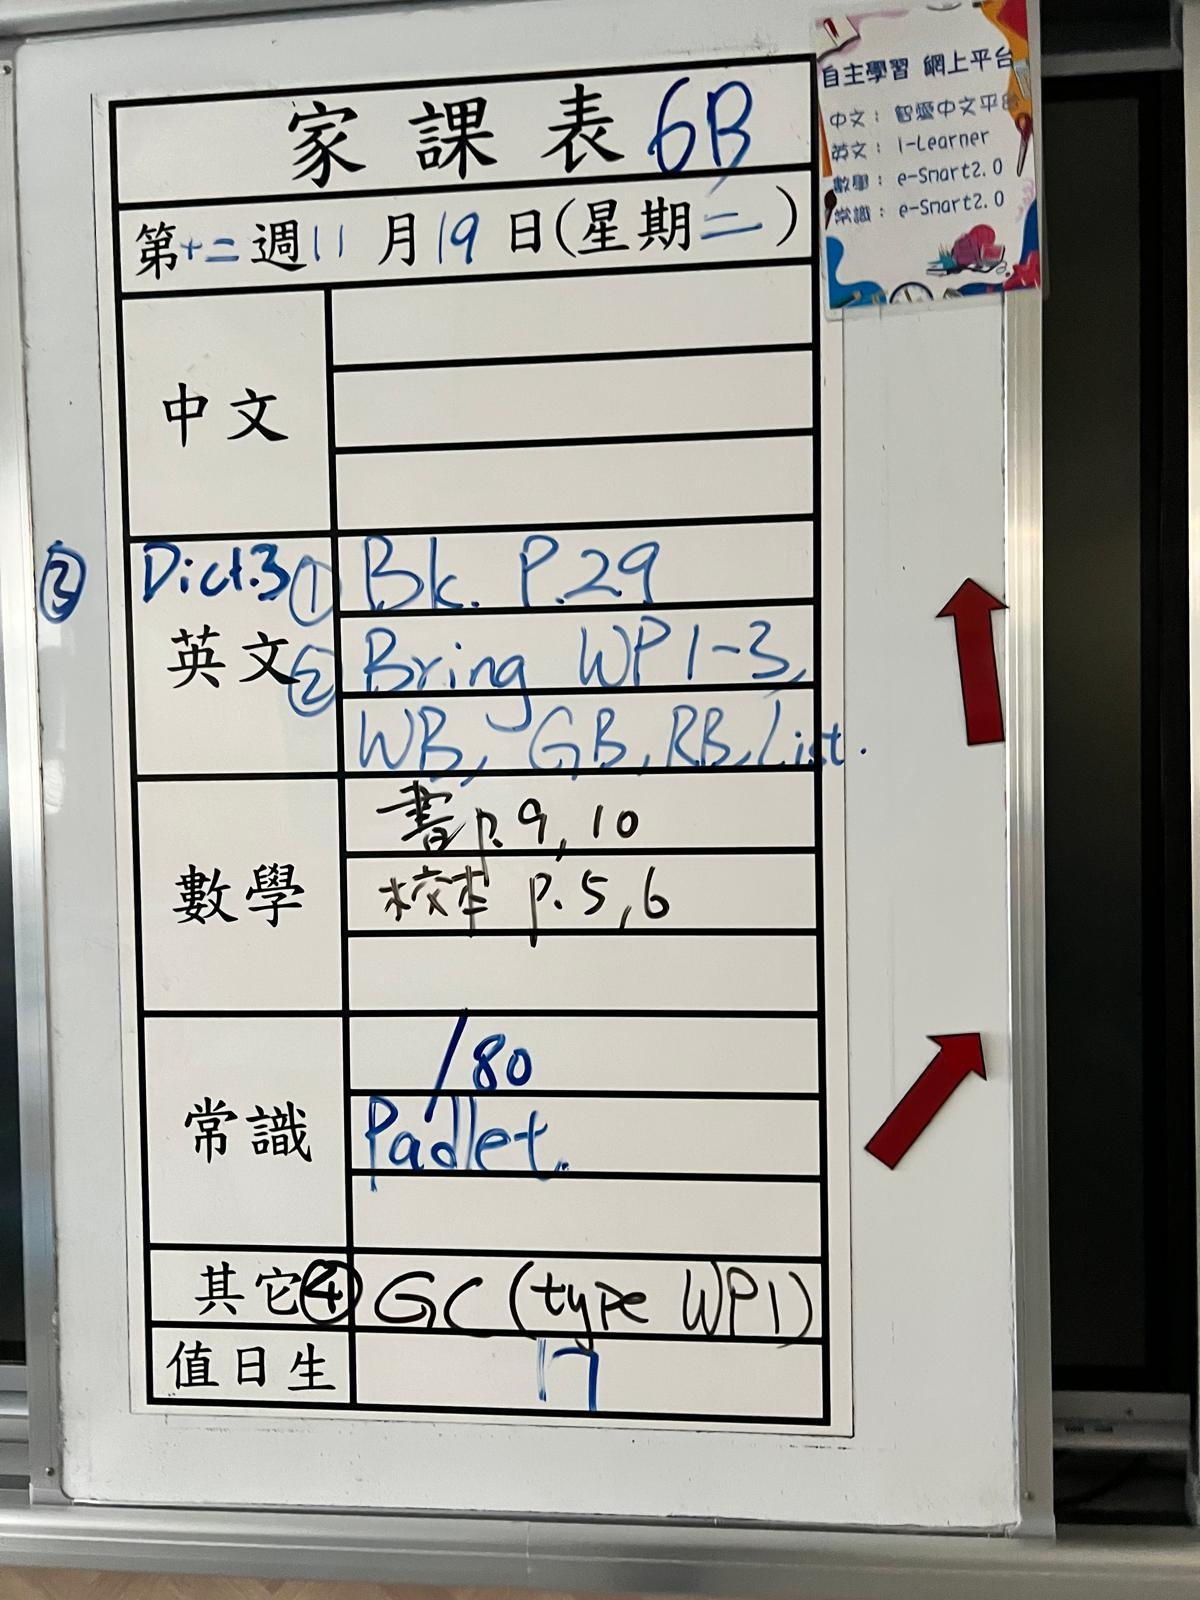 家課表 6B
第十二週 11月19日(星期二)
中文
③ Dict.3
英文
① Bk. P.29
② Bring WP1-3,
WB, GB, RB, List.
數學
書 p.9, 10
校本 p.5,6
常識
/80
Padlet.
其它 ④ GC (type WP1)
值日生 17
自主學習 網上平台
中文： 智愛中文平台
英文： I-Learner
數學： e-Smart2.0
常識： e-Smart2.0